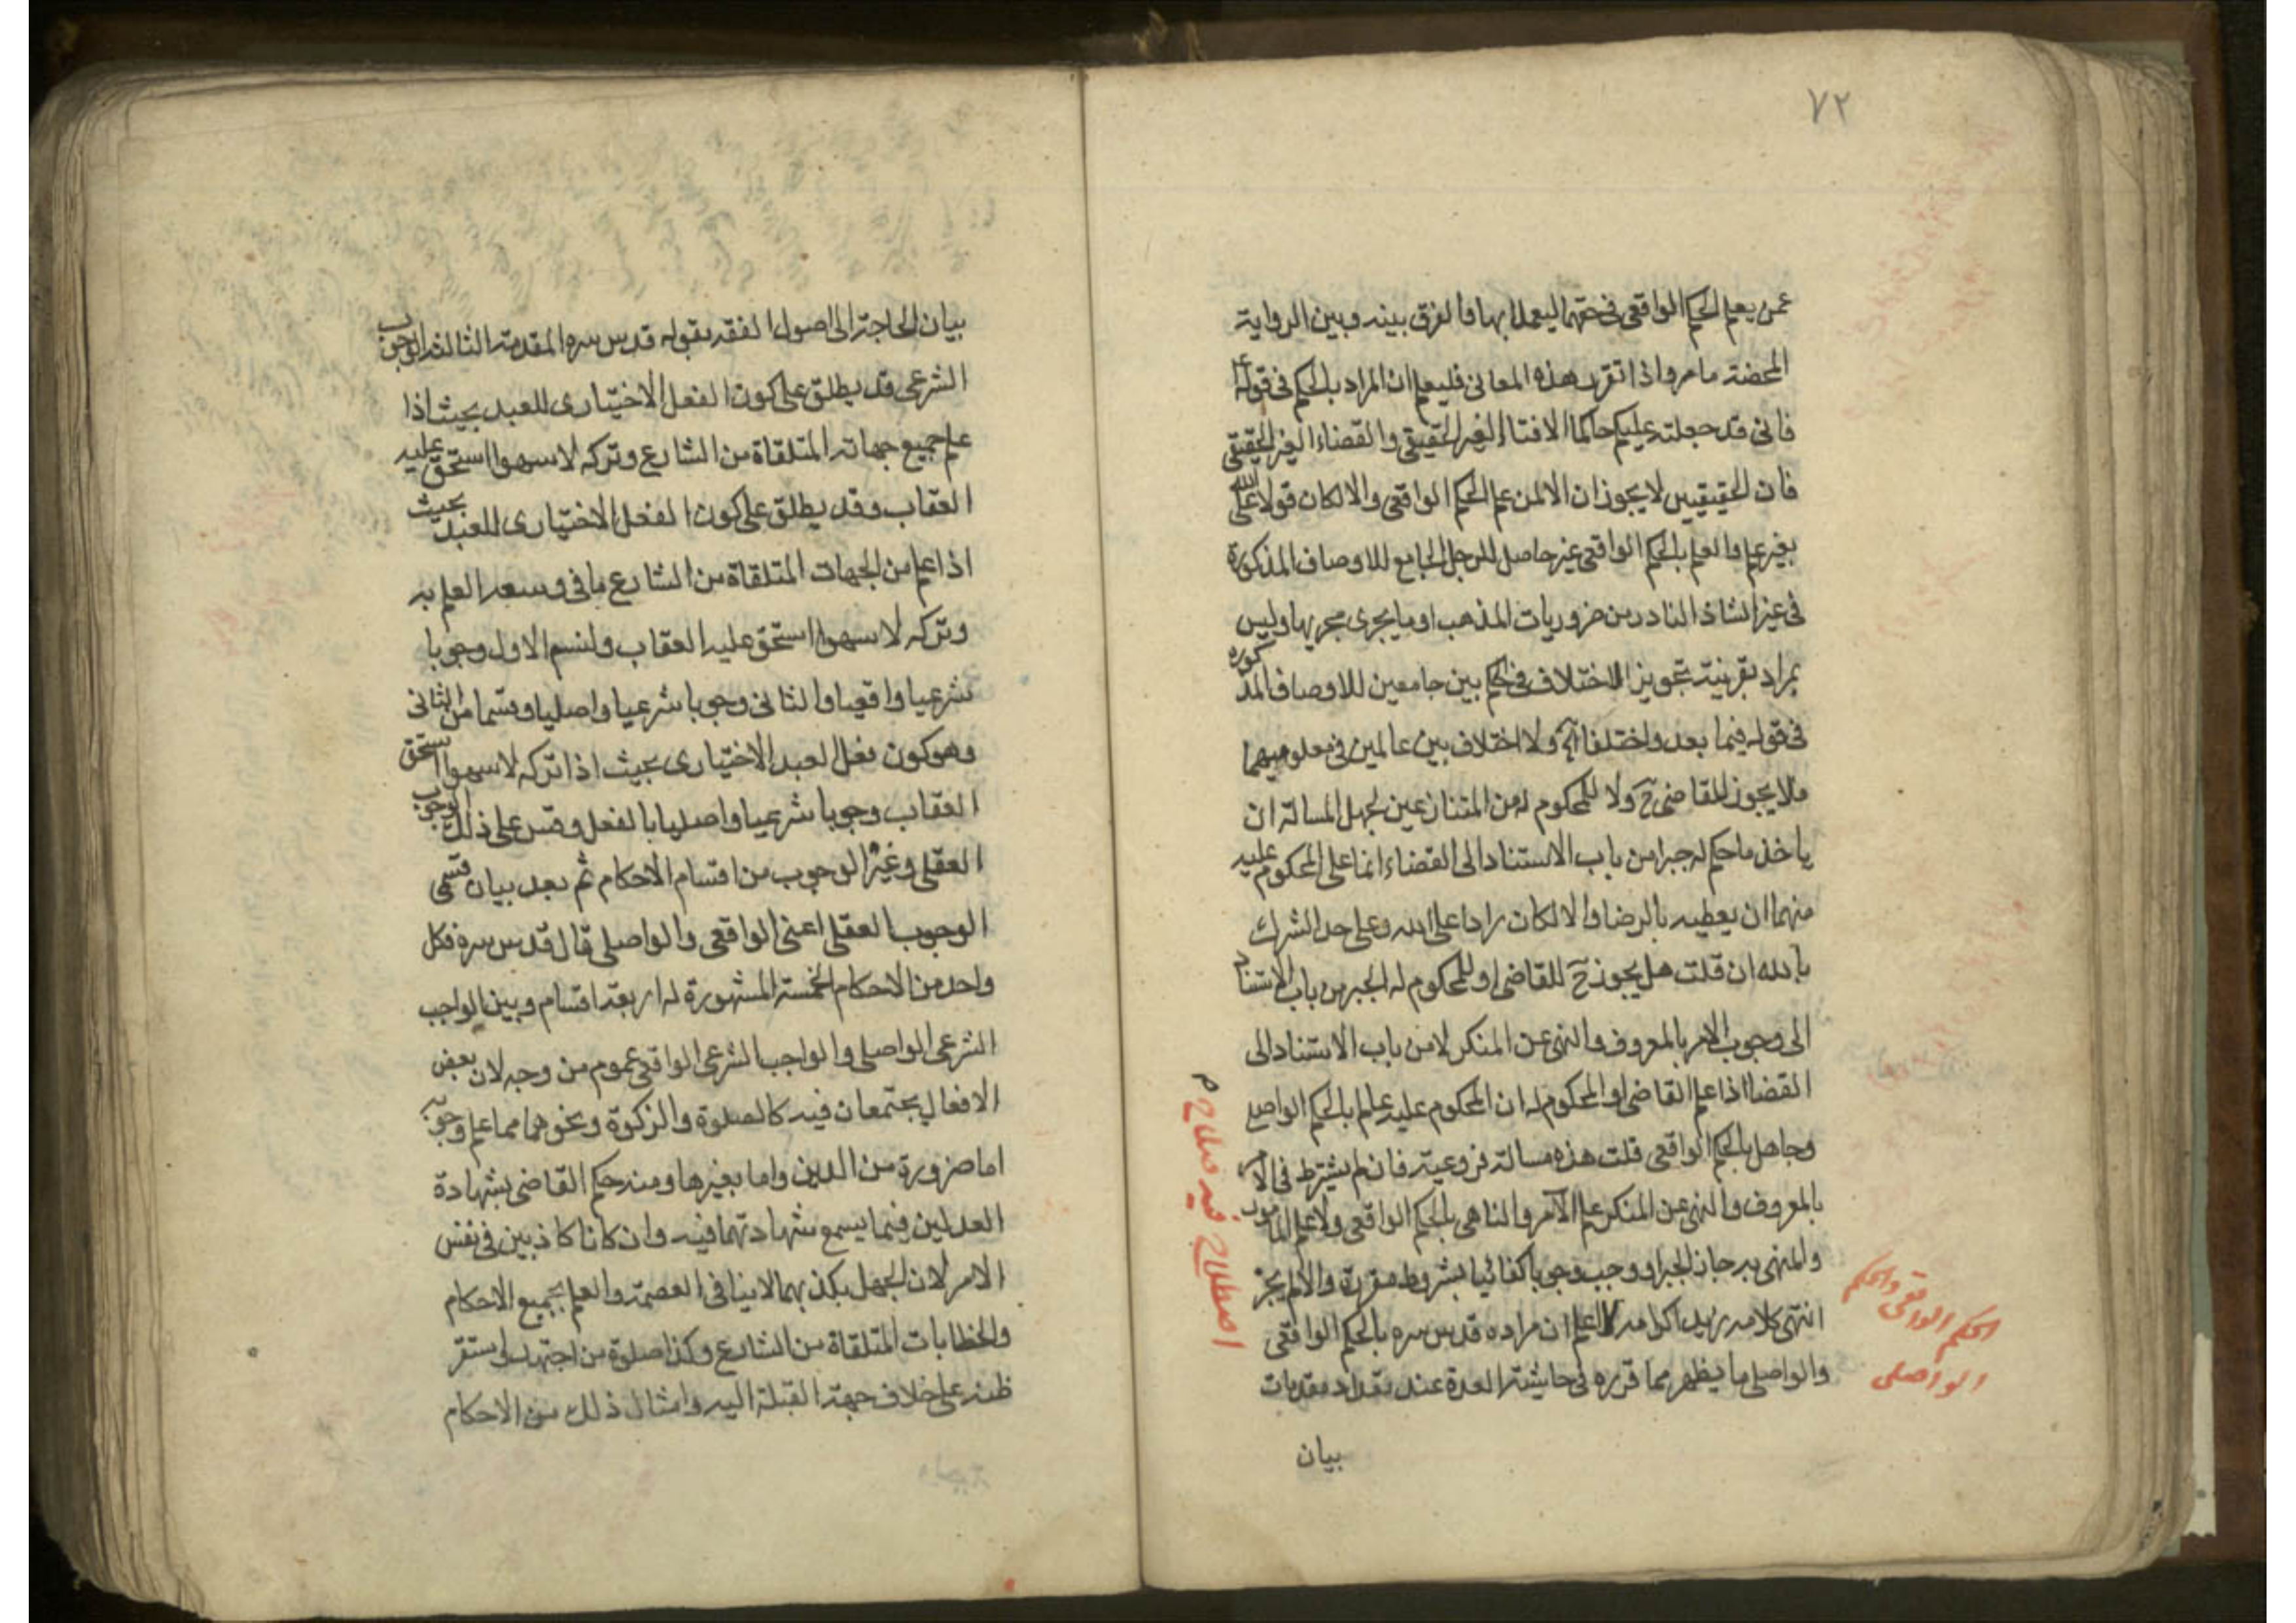 ٧٢
عمن يعلم الحكم الواقعى فى حقهما ليعملا بها والفرق بينه وبين الرواية
المحضة ما مر واذا تقرر هذه المعانى فليعلم ان المراد بالحكم فى قوله ع
فانى قد جعلته عليكم حاكما الافتاء الغير الحقيقى والقضاء الغير الحقيقى
فان الحقيقيين لا يجوزان الا لمن علم الحكم الواقعى والا لكان قولا على الله
بغير علم والعلم بالحكم الواقعى غير حاصل للرجل الجامع للاوصاف المذكورة
فى غير الشاذ النادر من ضروريات المذهب او ما يجرى مجريها وليس
بمراد بقرينة تجويز الاختلاف فى الحكم بين جامعين للاوصاف المذكوره
فى قوله فيما بعد واختلفا آه ولا اختلاف بين عالمين فى معلوميهما
فلا يجوز للقاضى ح ولا للمحكوم له من المتنازعين لجهل المسالة ان
ياخذ ما حكم له جبرا من باب الاستناد الى القضاء انما على المحكوم عليه
منهما ان يعطيه بالرضا والا لكان رادا على الله وعلى حد الشرك
بالله ان قلت هل يجوز ح للقاضى او للمحكوم له الجبر من باب الاستناد
الى وجوب الامر بالمعروف والنهى عن المنكر لا من باب الاستناد الى
القضا اذا علم القاضى او المحكوم له ان المحكوم عليه علم بالحكم الواصلى
وجاهل بالحكم الواقعى قلت هذه مسالة فروعية فان لم يشترط فى الامر
بالمعروف والنهى عن المنكر علم الآمر والناهى بالحكم الواقعى ولا علم المامور
والمنهى به جاز الجبر او وجب وجوبا كفائيا بشروط مقررة والا لم يجز
انتهى كلامه زيد اكرامه اعلم ان مراده قدس سره بالحكم الواقعى
والواصلى ما يظهر مما قرره فى حاشية العدة عند تعداد مقدمات
بيان
اصطلاح فيه صلاح م
الحكم الواقعى والحكم
الواصلى
بيان الحاجة الى اصول الفقه بقوله قدس سره المقدمة الثالثة الوجوب
الشرعى قد يطلق على كون الفعل الاختيارى للعبد بحيث اذا
علم جميع جهاته المتلقاة من الشارع وتركه لا سهوا استحق عليه
العقاب وقد يطلق على كون الفعل الاختيارى للعبد بحيث
اذا علم من الجهات المتلقاة من الشارع ما فى وسعه العلم به
وتركه لا سهوا استحق عليه العقاب ولنسم الاول وجوبا
شرعيا واقعيا والثانى وجوبا شرعيا واصليا وقسما من الثانى
وهو كون فعل العبد الاختيارى بحيث اذا تركه لا سهوا استحق
العقاب وجوبا شرعيا واصليا بالفعل وقس على ذلك الوجوب
العقلى وغير الوجوب من اقسام الاحكام ثم بعد بيان قسمى
الوجوب العقلى اعنى الواقعى والواصلى قال قدس سره فكل
واحد من الاحكام الخمسة المشهورة له اربعة اقسام وبين الواجب
الشرعى الواصلى والواجب الشرعى الواقعى عموم من وجه لان بعض
الافعال يجتمعان فيه كالصلوة والزكوة ونحوهما مما علم وجوبه
اما ضرورة من الدين واما بغيرها ومنه حكم القاضى بشهادة
العدلين فيما يسمع شهادتهما فيه وان كانا كاذبين فى نفس
الامر لان الجهل بكذبهما لا ينافى العصمة والعلم بجميع الاحكام
والخطابات المتلقاة من الشارع وكذا صلوة من اجتهد واستقر
ظنه على خلاف جهة القبلة اليه وامثال ذلك من الاحكام